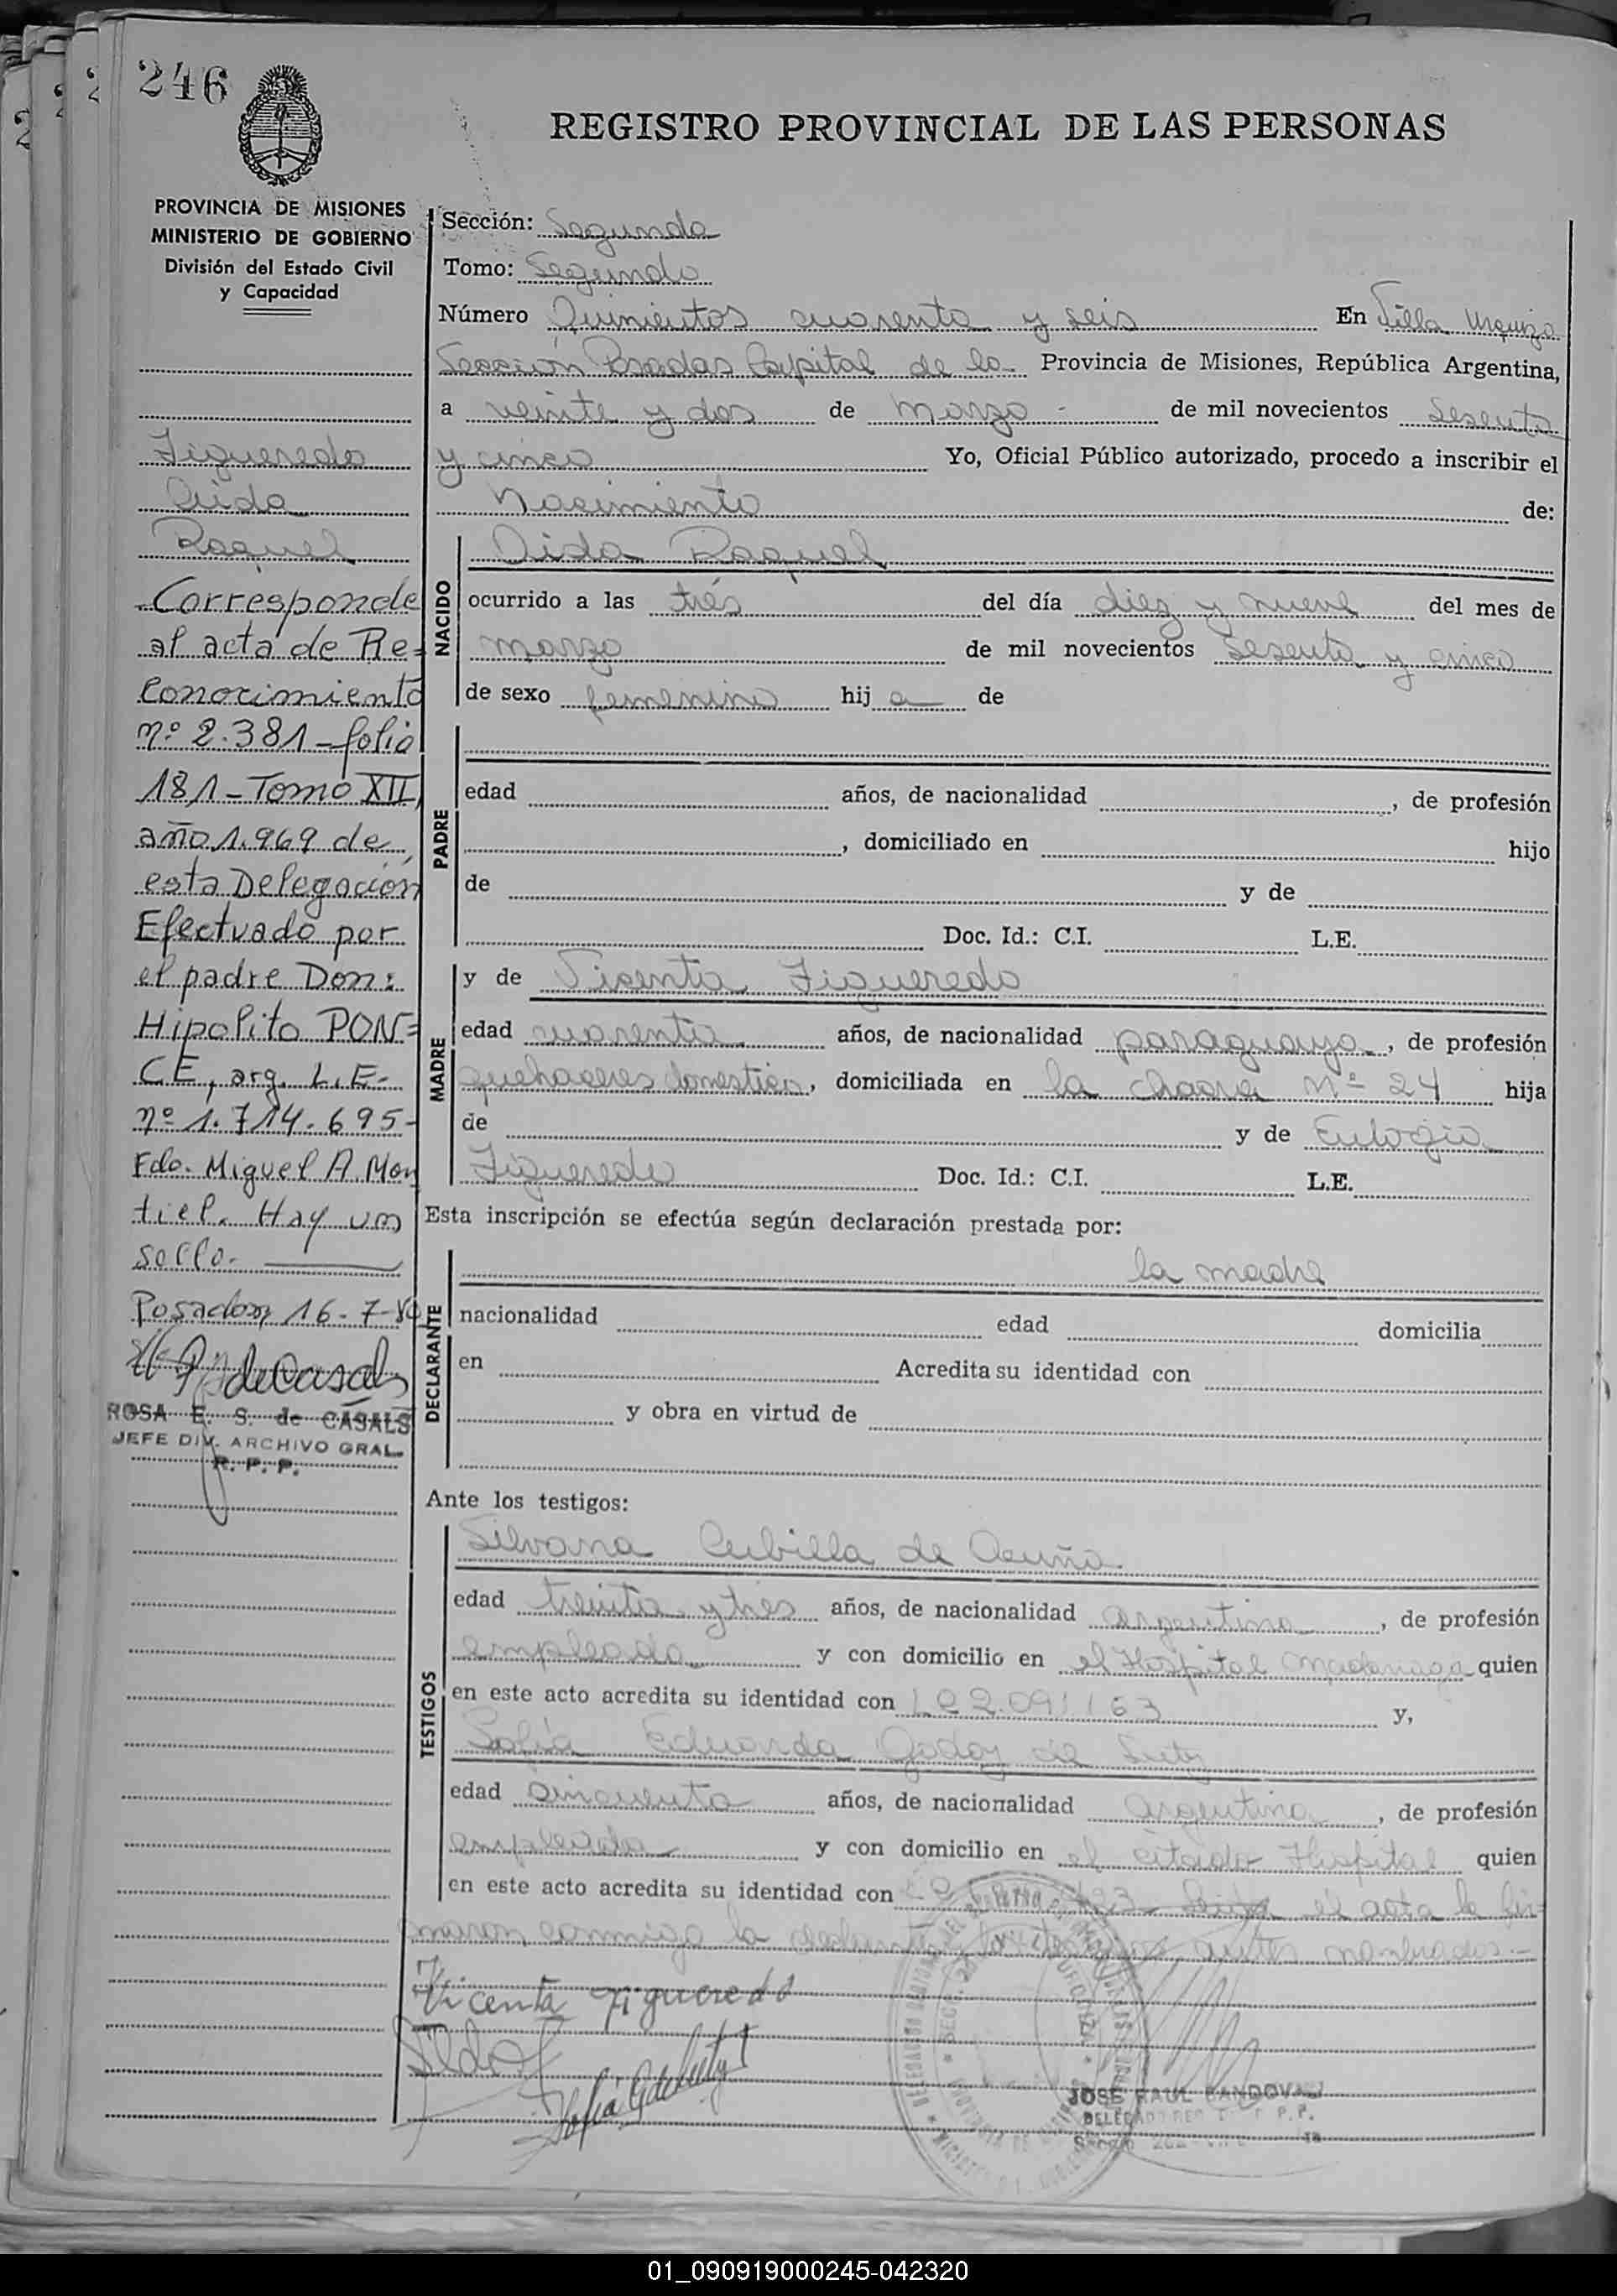 246
REGISTRO PROVINCIAL DE LAS PERSONAS
PROVINCIA DE MISIONES
MINISTERIO DE GOBIERNO
División del Estado Civil
y Capacidad
Figueredo
Aida
Raquel
Corresponde
al acta de Re=
conocimiento
nº 2.381-folio
181-Tomo XII,
año 1.969 de
esta Delegación
Efectuado por
el padre Don:
Hipolito PON=
CE, arg. L.E-
nº 1.714.695-
Fdo. Miguel A. Mon
tiel. Hay un
sello.
Posadas, 16-7-80
ROSA E. S. de CASALS
JEFE DIV. ARCHIVO GRAL.
R. P. P.
Sección: Segunda
Tomo: Segundo
Número Quinientos cuarenta y seis En Villa Urquiza
Sección Posadas Capital de la Provincia de Misiones, República Argentina,
a veinte y dos de Marzo - de mil novecientos Sesenta
y cinco Yo, Oficial Público autorizado, procedo a inscribir el
Nacimiento de:
NACIDO
Aida Raquel
ocurrido a las tres del día diez y nueve del mes de
marzo de mil novecientos Sesenta y cinco
de sexo femenino hij a de
PADRE
edad años, de nacionalidad , de profesión
, domiciliado en hijo
de y de
Doc. Id.: C.I. L.E.
MADRE
y de Vicenta Figueredo
edad cuarenta años, de nacionalidad paraguaya, de profesión
quehaceres domesticos, domiciliada en la chacra Nº 24 hija
de y de Eulogia
Figueredo Doc. Id.: C.I. L.E.
Esta inscripción se efectúa según declaración prestada por:
DECLARANTE
la madre
nacionalidad edad domicilia
en Acredita su identidad con
y obra en virtud de
Ante los testigos:
TESTIGOS
Silvana Cubilla de Acuña
edad treinta y tres años, de nacionalidad argentina, de profesión
empleada y con domicilio en el Hospital Madariaga quien
en este acto acredita su identidad con y,
Sofia Eduarda Godoy de
edad cincuenta años, de nacionalidad argentina, de profesión
empleada y con domicilio en el citado Hospital quien
en este acto acredita su identidad con el acta la fir=
maron conmigo la antes nombrados.-
Vicenta Figueredo
JOSE RAUL SANDOVAL
01_090919000245-042320